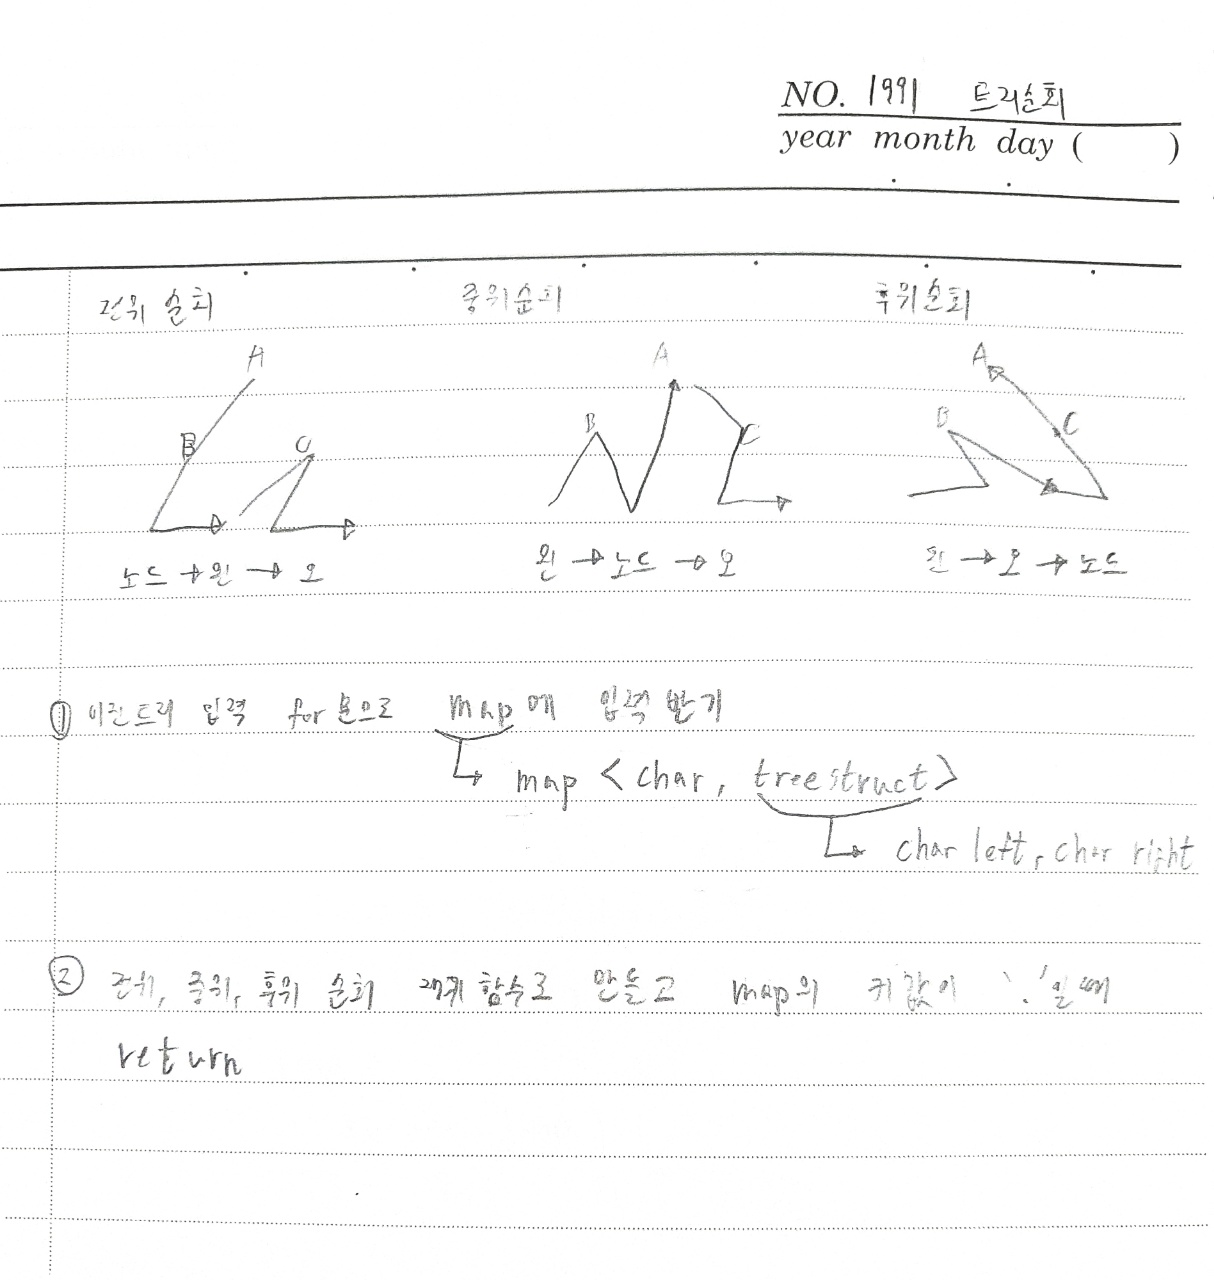 NO. 1991 트리순회
year month day ( )
전위 순회 중위순회 후위순회
A A A
B C B C B C
노드 → 왼 → 오 왼 → 노드 → 오 왼 → 오 → 노드
① 이진트리 입력 for문으로 map에 입력 받기
↳ map <char, treestruct>
↳ char left, char right
② 전위, 중위, 후위 순회 재귀 함수로 만들고 map의 키값이 '.'일 때
return